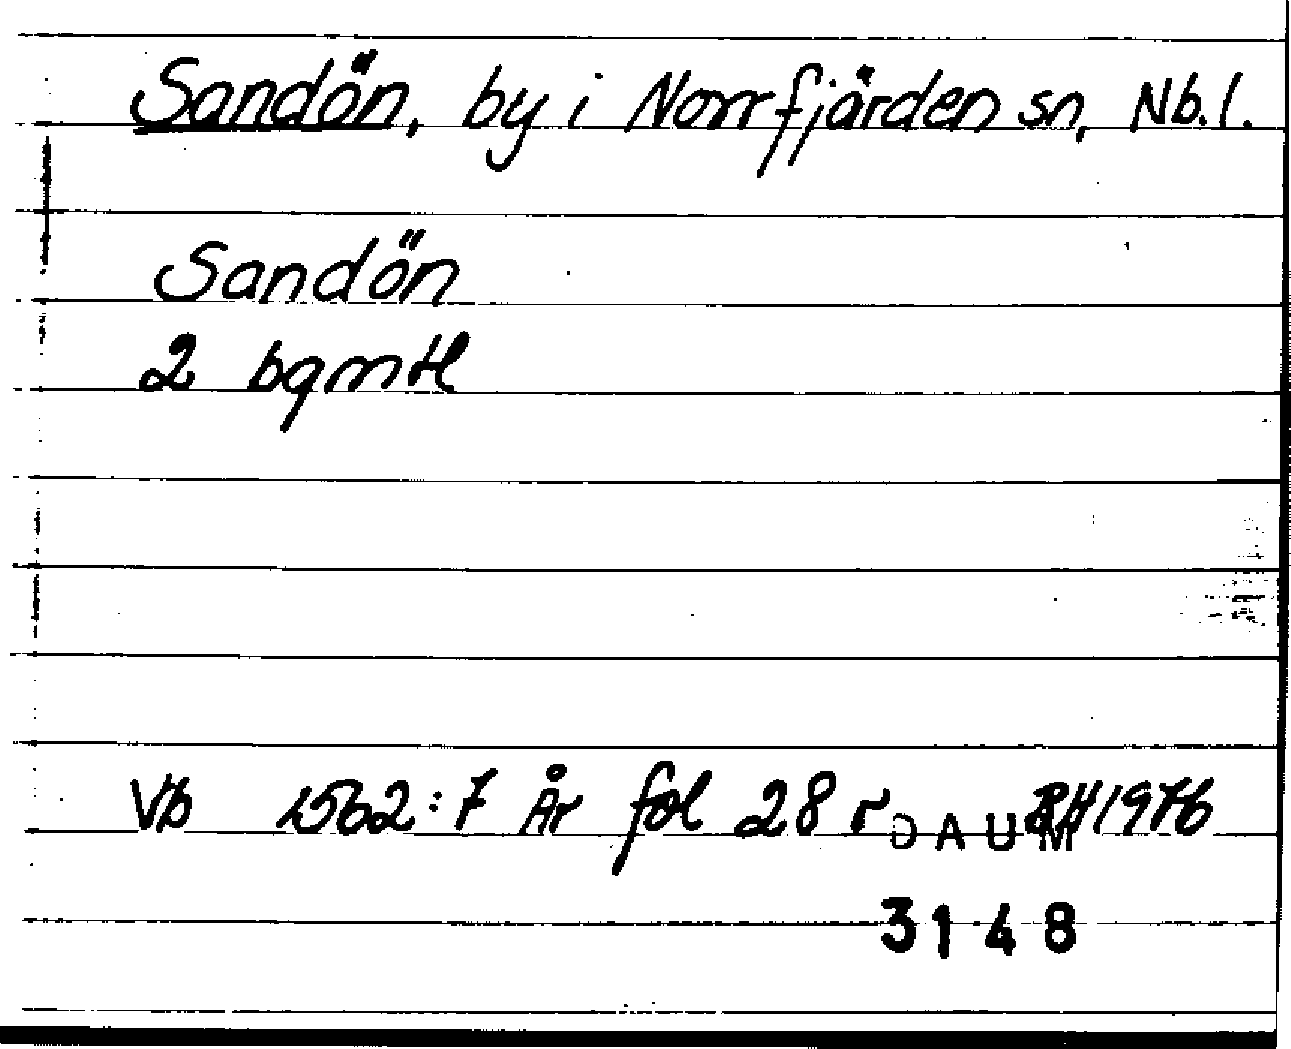 Sandön, by i Norrfjärden sn, Nb.l.
Sandön
2 bgmtl
Vb 1562:7 År fol 28 r DAUM RH 1976
3148